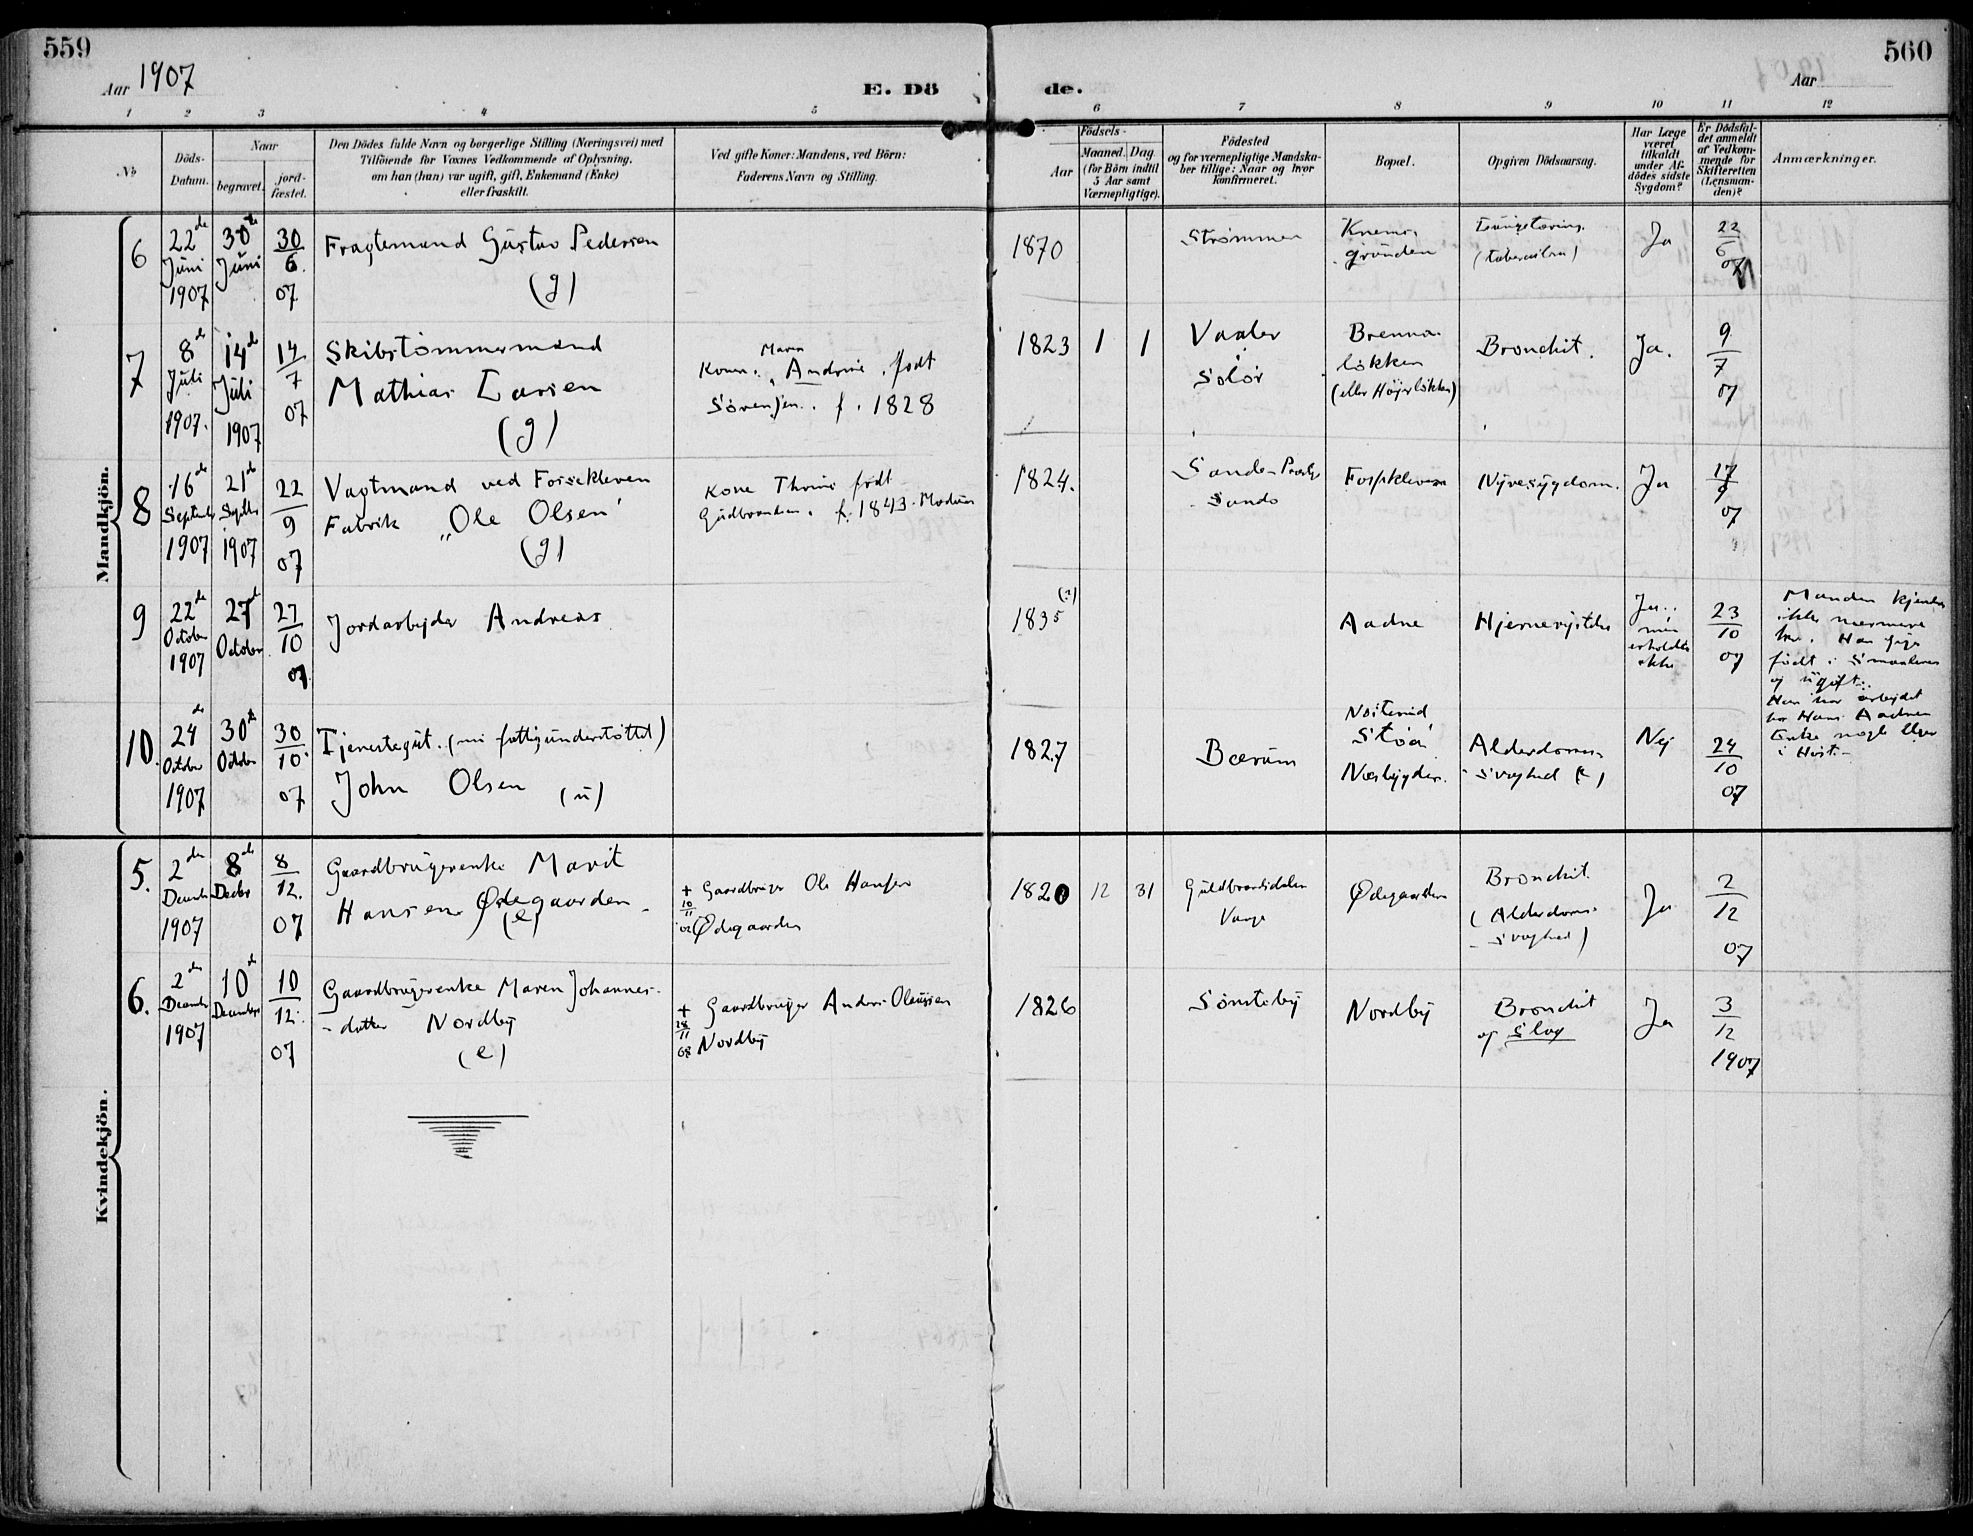 559
Aar 1907
E. Dö
de.
560
Aar
1 2 3 4 5 6 7 8 9 10 11 12
No
Döds-
Datum.
Naar
begravet.
jord-
fæstet.
Den Dödes fulde Navn og borgerlige Stilling (Næringsvei) med
Tilföiende for Voxnes Vedkommende af Oplysning,
om han (hun) var ugift, gift, Enkemand (Enke)
eller fraskilt.
Ved gifte Koner: Mandens, ved Börn:
Faderens Navn og Stilling.
Födsels-
Aar
Maaned. Dag
(for Börn indtil
5 Aar samt
Værnepligtige).
Födested
og for værnepligtige Mandska-
ber tillige: Naar og hvor
konfirmeret.
Bopæl.
Opgiven Dödsaarsag.
Har Læge
været
tilkaldt
under Af-
dödes sidste
Sygdom?
Er Dödsfal-
det anmeldt
af Vedkom-
mende for
Skifteretten
(Lensman-
den)?
Anmærkninger.
Mandkjön.
6
22de
Juni
1907
30te
Juni
30
6.
07
Fragtemand Gustav Pedersen
(g)
1870
Strømmen
grunden
Lungetæring.
(tuberculose)
Ja
22
6
07
7
8de
Juli
1907.
14de
Juli
1907
14
7
07
Skibstømmermand
Mathias Larsen
(g)
Maren
Kone: Andrine, født
Sørensen. f. 1828
1823 1 1
Vaaler
i
Solør
Brenna-
løkken
(eller Højerløkken)
Bronchit.
Ja.
9
7
07
8
16de
Septemb
1907
21de
Septbr
1907
22
9
07
Vagtmand ved Fossekleven
Fabrik „Ole Olsen'
(g)
Kone Thrine født
Gudbrandsen. f. 1843. Modum
1824.
Sande Præstg
Sande
Fossekleven
Nyresygdom.
Ja
17
9
07
9
22de
October
1907
27de
October
27
10
07
Jordarbejder Andreas
1835 (?)
Aadne
Ja..
men
erholdtes
ikke
23
10
07
Manden kjendes
ikke nærmere
her. Han siges
født i Smaalenene
og ugift..
Han har arbejdet
hos Hans Aadnes
Enke nogle Uger
i Høst.-
10.
24de
October
1907
30te
October
30
10.
07
Tjenestegut. (nu fattigunderstøttet)
John Olsen (u)
1827
Bærum
Støa
Nesbygden.
Alderdoms-
-svaghed (?)
Nej
24
10
07
Kvindekjön.
5.
2den
Decemb
1907
8de
Decbr
8
12.
07
Gaardbrugerenke Marit
Hansen Ødegaarden
(e)
+ Gaardbruger Ole Hansen
10
11
02 Ødegaarden
1820 12 31
Guldbrandsdalen
Vaage
Ødegaarden
Bronchit.
(Alderdoms-
-svaghed)
Ja
2
12
07
6.
2den
Decemb
1907
10de
December
10
12.
07
Gaardbrugerenke Maren Johannes-
-datter Nordby
(e)
+ Gaardbruger Anders Olaussen
11
68 Nordby
1826
Sønsteby
Nordby
Bronchit
og Slag
Ja
3
12
1907